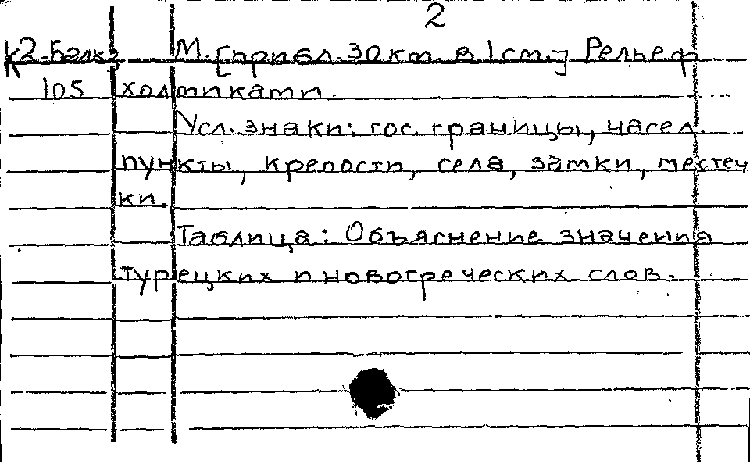 2
К2-Балк. М. [прибл. 30 км. в 1 см.] Рельеф
105 холмиками.
Усл. знаки: гос. границы, насел.
пункты, крепости, села, замки, местеч
ки.
Таблица: Объяснение значения
турецких и новогреческих слов.